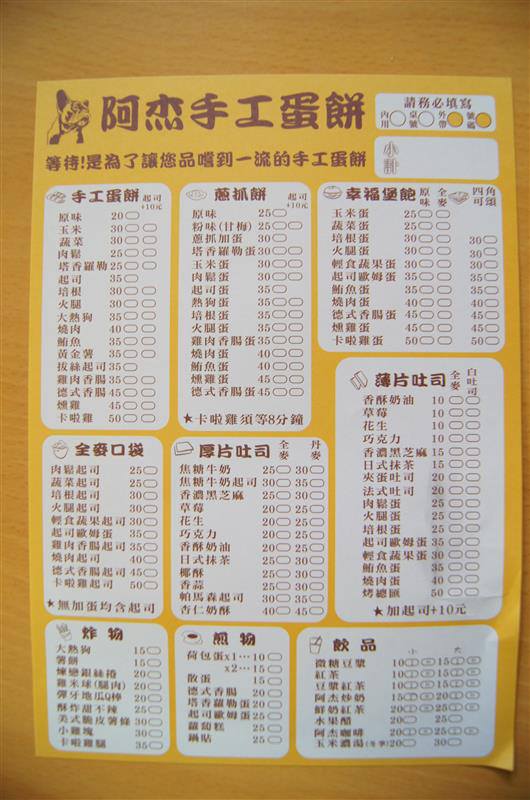 阿杰手工蛋餅
請務必填寫
內用 桌號 外帶 號碼
等待!是為了讓您品嚐到一流的手工蛋餅
小計
手工蛋餅 起司+10元
原味 20
玉米 30
蔬菜 30
肉鬆 25
塔香羅勒 25
起司 35
培根 30
火腿 30
大熱狗 35
燒肉 40
鮪魚 35
黃金薯 35
拔絲起司 35
雞肉香腸 35
德式香腸 45
燻雞 45
卡啦雞 50
蔥抓餅 起司+10元
原味 25
粉味(甘梅) 25
蔥抓加蛋 30
塔香羅勒蛋 30
玉米蛋 30
肉鬆蛋 30
起司蛋 35
熱狗蛋 35
培根蛋 35
火腿蛋 35
雞肉香腸蛋 35
燒肉蛋 40
鮪魚蛋 40
燻雞蛋 45
德式香腸蛋 45
★卡啦雞須等8分鐘
幸福堡飽 原味 全麥 四角可頌
玉米蛋 25
蔬菜蛋 25
培根蛋 30 30
火腿蛋 30 30
輕食蔬果蛋 30 30
起司歐姆蛋 35 35
鮪魚蛋 35 35
燒肉蛋 40 40
德式香腸蛋 45 45
燻雞蛋 45 45
卡啦雞蛋 50 50
薄片吐司 全麥 白吐司
香酥奶油 10
草莓 10
花生 10
巧克力 10
香濃黑芝麻 15
日式抹茶 15
夾蛋吐司 20
法式吐司 20
肉鬆蛋 25
火腿蛋 25
培根蛋 25
起司歐姆蛋 30
輕食蔬果蛋 30
鮪魚蛋 35
燒肉蛋 40
烤總匯 50
★加起司+10元
全麥口袋
肉鬆起司 25
蔬菜起司 25
培根起司 30
火腿起司 30
輕食蔬果起司 30
起司歐姆蛋 35
雞肉香腸起司 35
燒肉起司 40
德式香腸起司 45
卡啦雞起司 50
★無加蛋均含起司
厚片吐司 全麥 丹麥
焦糖牛奶 25 30
焦糖牛奶起司 30 35
香濃黑芝麻 25 30
草莓 20 25
花生 20 25
巧克力 20 25
香酥奶油 20 25
日式抹茶 25 30
椰酥 25 30
香蒜 25 30
帕馬森起司 30 35
杏仁奶酥 40 45
炸物
大熱狗 15
薯餅 15
煉戀銀絲捲 20
雞米球(腿肉) 20
彈牙地瓜Q棒 20
酥炸甜不辣 25
美式脆皮薯條 30
小雞塊 30
卡啦雞腿 35
煎物
荷包蛋x1…10
x2…15
散蛋 15
德式香腸 20
塔香羅勒蛋 20
起司歐姆蛋 25
蘿蔔糕 25
鍋貼 25
飲品
小 大
微糖豆漿 10 15
紅茶 10 15
豆漿紅茶 10 15
阿杰炒奶 15 20
鮮奶紅茶 15 20
水果醋 20
阿杰咖啡 20
玉米濃湯(冬季) 20 30